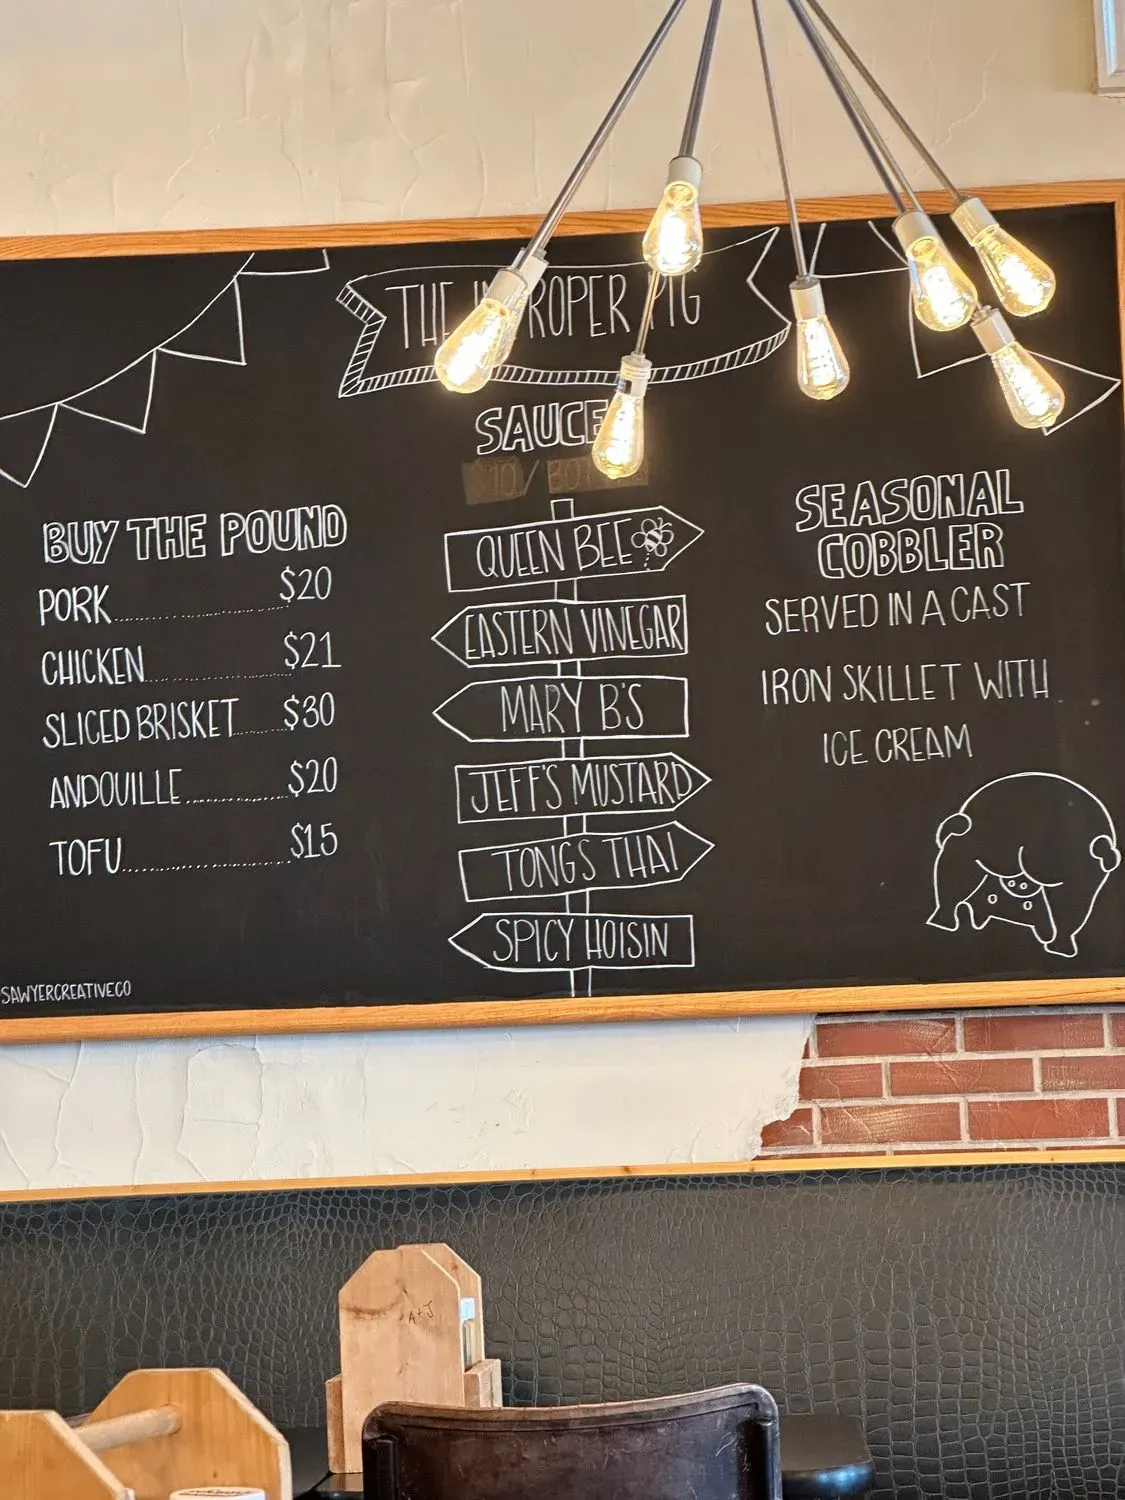 THE IMPROPER PIG
SAUCE
$10 /
BUY THE POUND
PORK $20
CHICKEN $21
SLICED BRISKET $30
ANDOUILLE $20
TOFU $15
QUEEN BEE
EASTERN VINEGAR
MARY B'S
JEFF'S MUSTARD
TONGS THAI
SPICY HOISIN
SEASONAL
COBBLER
SERVED IN A CAST
IRON SKILLET WITH
ICE CREAM
SAWYERCREATIVECO
A+J